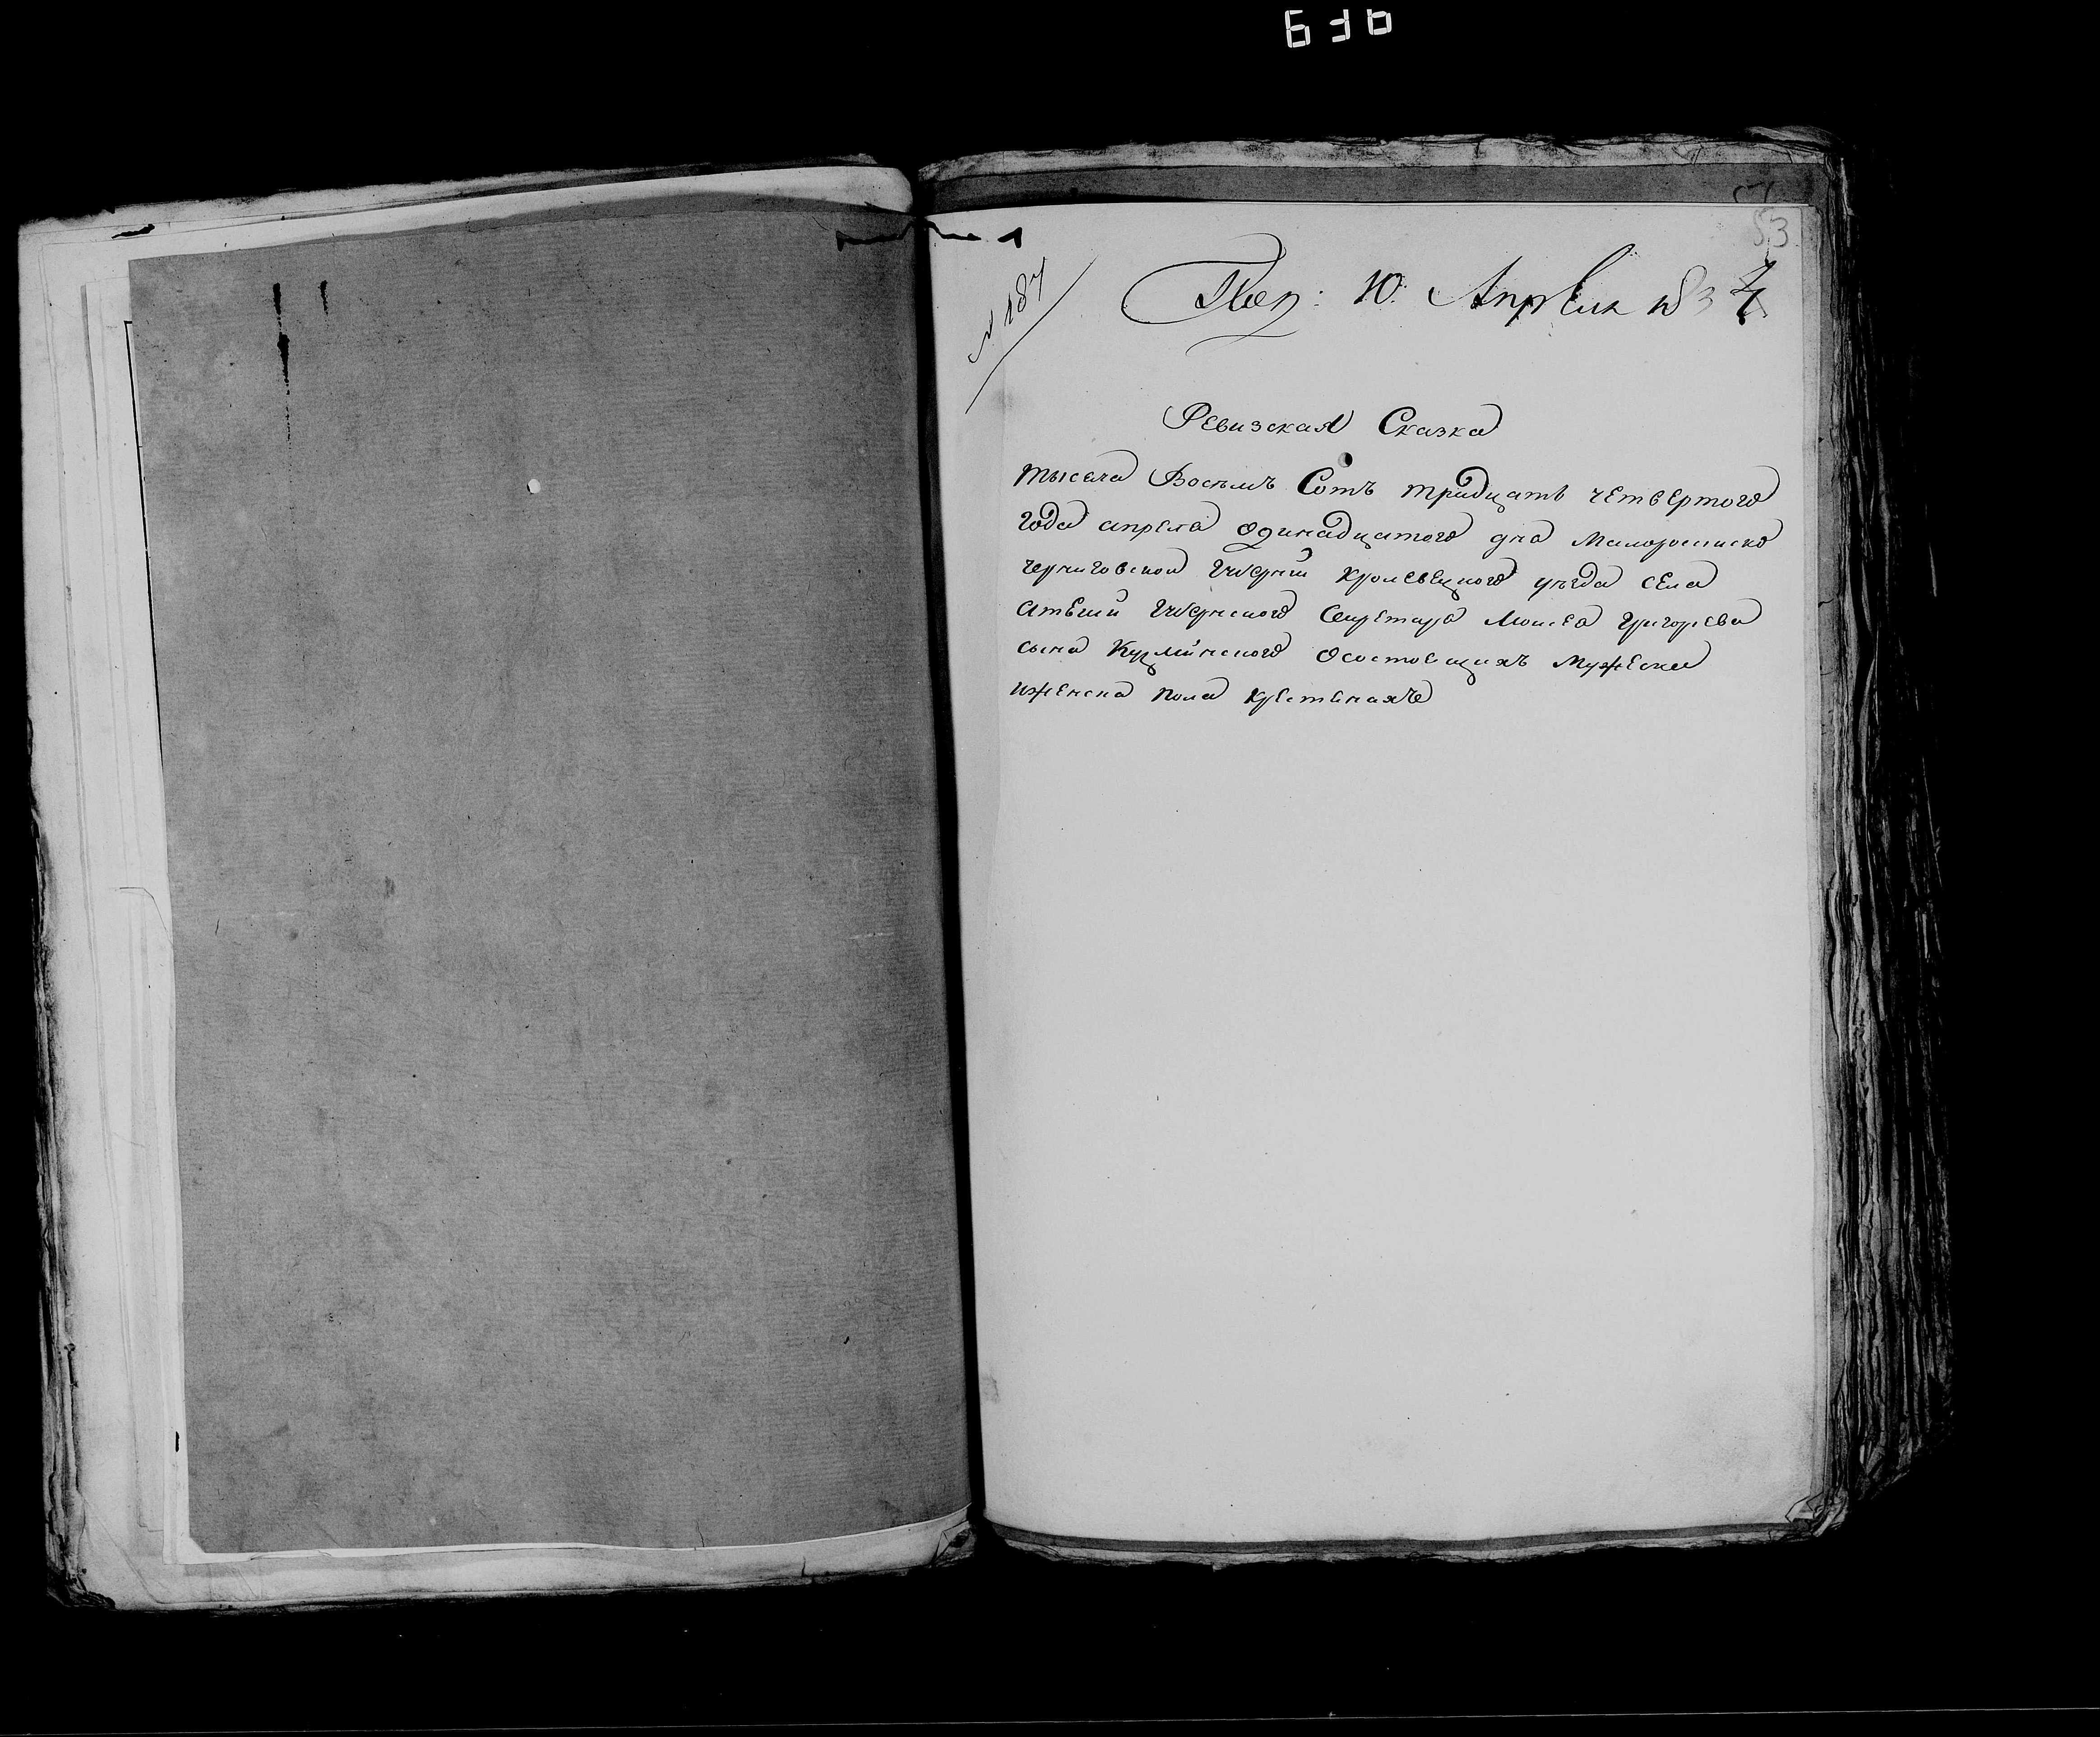 636
53
№ 187
Пол: 10: Апреля 1834
Ревизская Сказка
тысеча Восемъ Сотъ тридцать четвертого
года апреля одинадцатого дня Малоросииско
черниговской Губерніи кролевецкого уезда села
Губернского Секретара Моисея Григорьева
сына осостоещихъ Мужеска
иженска пола крестьянахъ